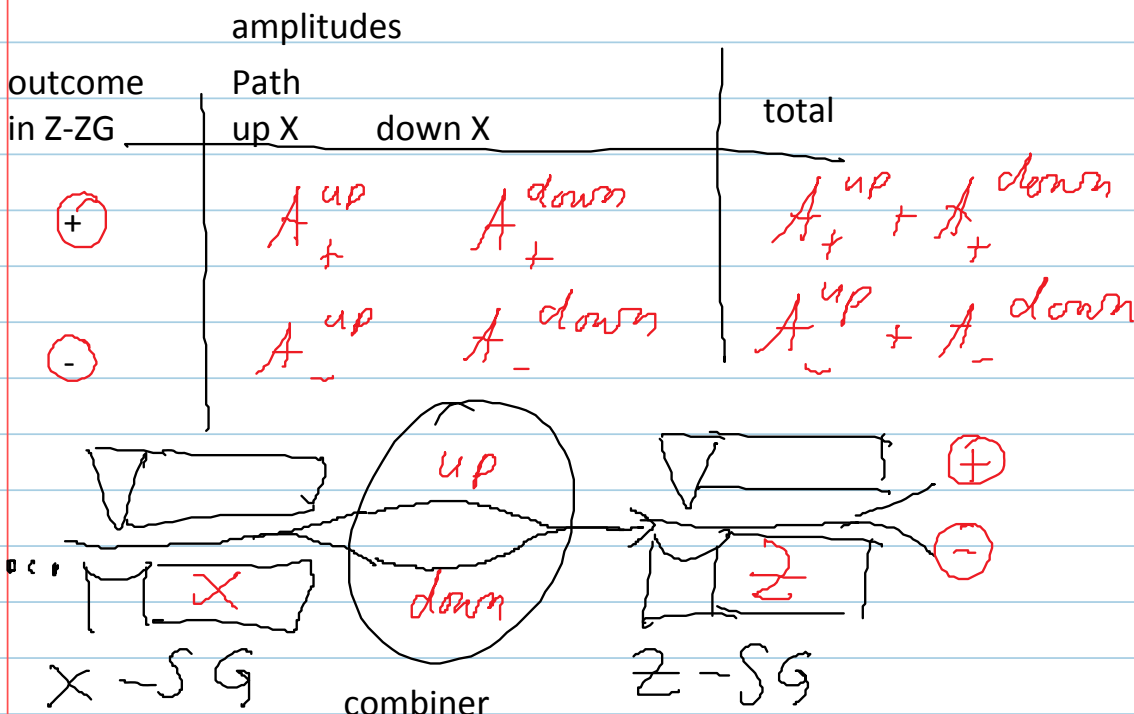 amplitudes
outcome Path
in Z-ZG up X down X total
+ A₊ᵘᵖ A₊ᵈᵒʷⁿ A₊ᵘᵖ + A₊ᵈᵒʷⁿ
- A₋ᵘᵖ A₋ᵈᵒʷⁿ A₋ᵘᵖ + A₋ᵈᵒʷⁿ
up +
-
X down Z
X-SG Z-SG
combiner